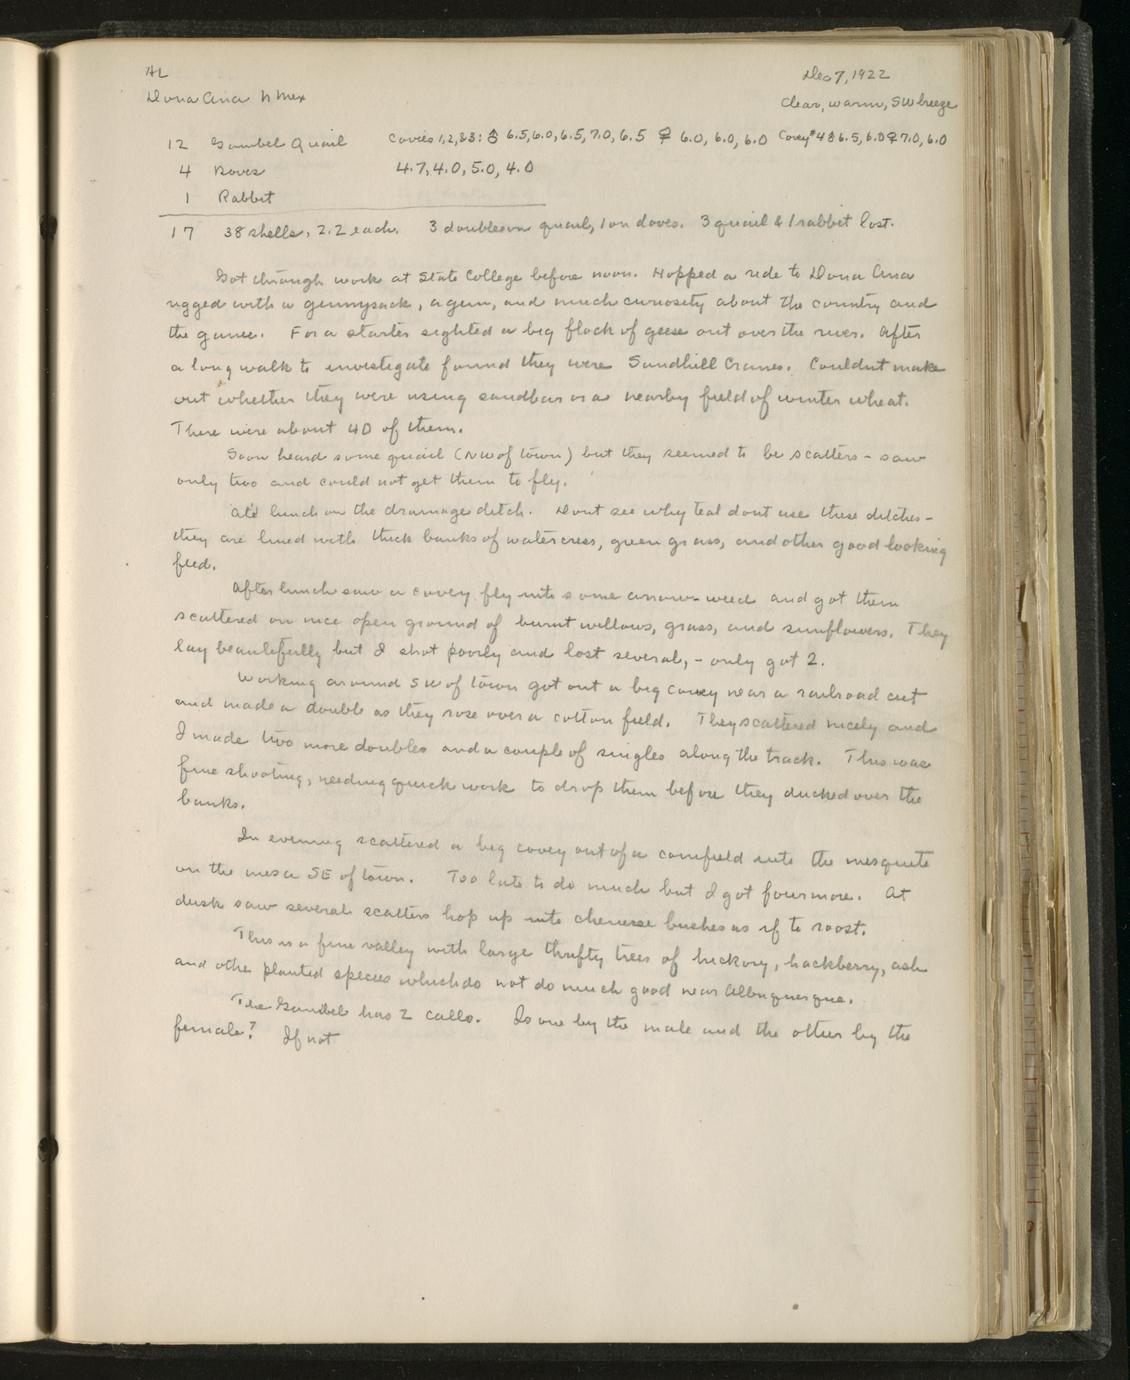 AL
Dec 7, 1922
Dona Ana N Mex
Clear, warm, SW breeze
12 Gambel Quail Covies 1, 2, & 3: ♂ 6.5, 6.0, 6.5, 7.0, 6.5 ♀ 6.0, 6.0, 6.0 Covey #4 ♂ 6.5, 6.0 ♀ 7.0, 6.0
4 Doves 4.7, 4.0, 5.0, 4.0
1 Rabbit
17 38 shells, 2.2 each. 3 doubles on quail, 1 on doves. 3 quail & 1 rabbit lost.
Got through work at State College before noon. Hopped a ride to Dona Ana
rigged with a gunnysack, a gun, and much curiosity about the country and
the game. For a starter sighted a big flock of geese out over the river. After
a long walk to investigate found they were Sandhill Cranes. Couldnt make
out whether they were using sandbar or a nearby field of winter wheat.
There were about 40 of them.
Soon heard some quail (NW of town) but they seemed to be scatters - saw
only two and could not get them to fly.
Ate lunch on the drainage ditch. Dont see why teal dont use these ditches -
they are lined with thick banks of watercress, green grass, and other good looking
feed.
After lunch saw a covey fly into some arrow-weed and got them
scattered on nice open ground of burnt willows, grass, and sunflowers. They
lay beautifully but I shot poorly and lost several, - only got 2.
Working around SW of town got out a big covey near a railroad cut
and made a double as they rose over a cotton field. They scattered nicely and
I made two more doubles and a couple of singles along the track. This was
fine shooting, needing quick work to drop them before they ducked over the
banks.
In evening scattered a big covey out of a cornfield into the mesquite
on the mesa SE of town. Too late to do much but I got four more. At
dusk saw several scatters hop up into bushes as if to roost.
This is a fine valley with large thrifty trees of hickory, hackberry, ash
and other planted species which do not do much good near Albuquerque.
The Gambel has 2 calls. Is one by the male and the other by the
female? If not